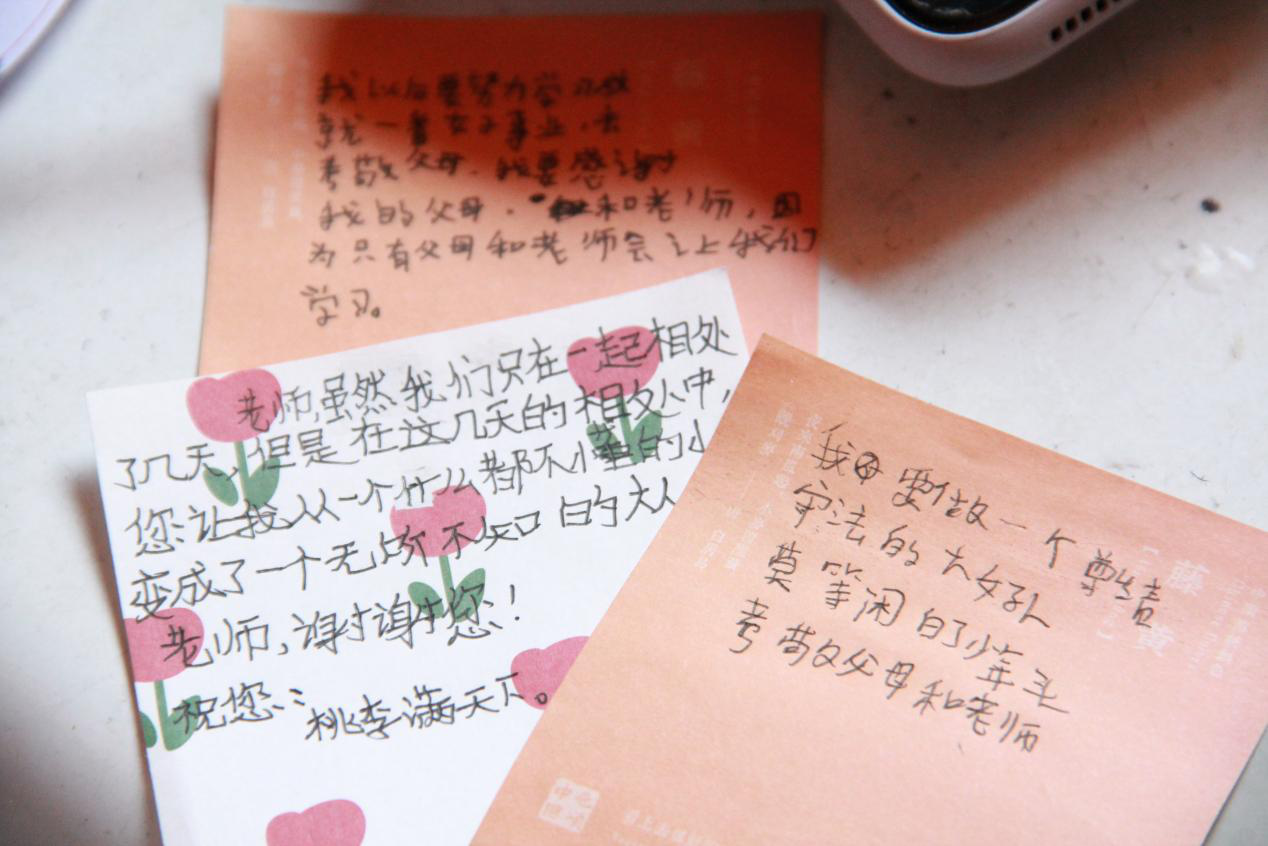 我以后要努力学习做
就一番女子事业，去
孝敬父母.我要感谢
我的父母.和老师，因
为只有父母和老师会让我们
学习。
老师,虽然我们只在一起相处
了几天,但是在这几天的相处中,
您让我从一个什么都不懂的小
变成了一个无所不知的大人
老师,谢谢您!
祝您:桃李满天下。
我要做一个尊结
守法的大好人
莫等闲白了少年头
孝敬父母和老师
藤黄